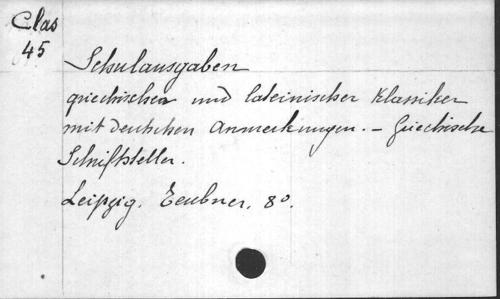 Clas
45
Schulausgaben
griechischer und lateinischer Klassiker
mit deutschen Anmerkungen. - Griechische
Schriftsteller.
Leipzig. Teubner. 8°.